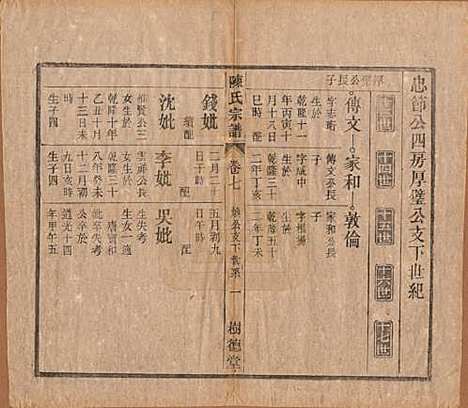 忠節公四房厚璧公支下世紀
十五世
十六世
十七世
傳文
字志
生於
乾隆十一
年丙寅十
月十八日
巳時
家和
傳文公長
子
字咸中
生於
乾隆三十
二年丁亥
敦倫
家和公長
子
字根
生於
乾隆五十
二年丁未
陳氏宗譜
卷七
一
樹德堂
錢妣
配
二月二十
日子時
五月初九
日午時
沈妣
繼配
李妣
配
吳妣
配
維賢公三
女生於
乾隆十年
乙丑十月
十三日未
時
生子四
雲祥公長
女生於
乾隆二十
八年癸未
十二月初
九日亥時
生子四
生失考
女生一適
唐寶和
妣卒失考
公卒於
道光十四
年甲午五